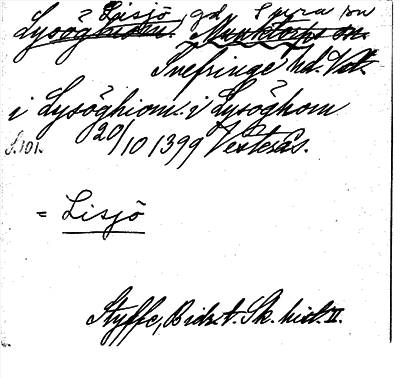 ? Lisjö, gd, Spura sn
Lysöghiom. Munktorps sn.
Snefringe hd. Vstm.
i Lysöghiom. i Lysöghom
S. 101. 20/10 1399 Vesterås.
= Lisjö
Styffe, Bidr. t. Sk. hist. II.